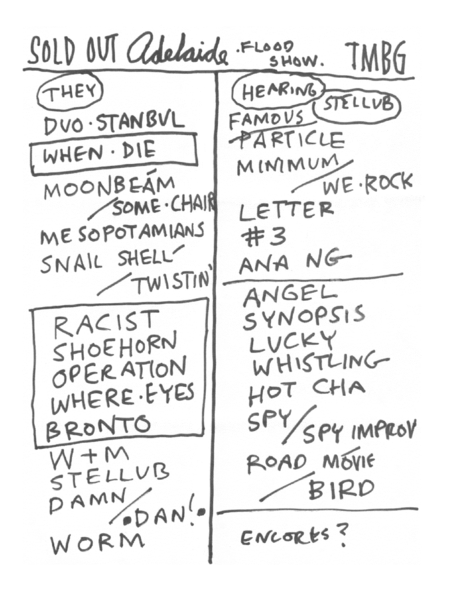 SOLD OUT Adelaide ·FLOOD SHOW. TMBG
THEY
DUO·STANBUL
WHEN·DIE
MOONBEAM
/SOME·CHAIR
MESOPOTAMIANS
SNAIL SHELL
/TWISTIN'
RACIST
SHOEHORN
OPERATION
WHERE·EYES
BRONTO
W+M
STELLUB
DAMN
/·DAN!·
WORM
HEARING
STELLUB
FAMOUS
PARTICLE
MINIMUM
/WE·ROCK
LETTER
#3
ANA NG
ANGEL
SYNOPSIS
LUCKY
WHISTLING
HOT CHA
SPY/SPY IMPROV
ROAD MOVIE
/BIRD
ENCORES?